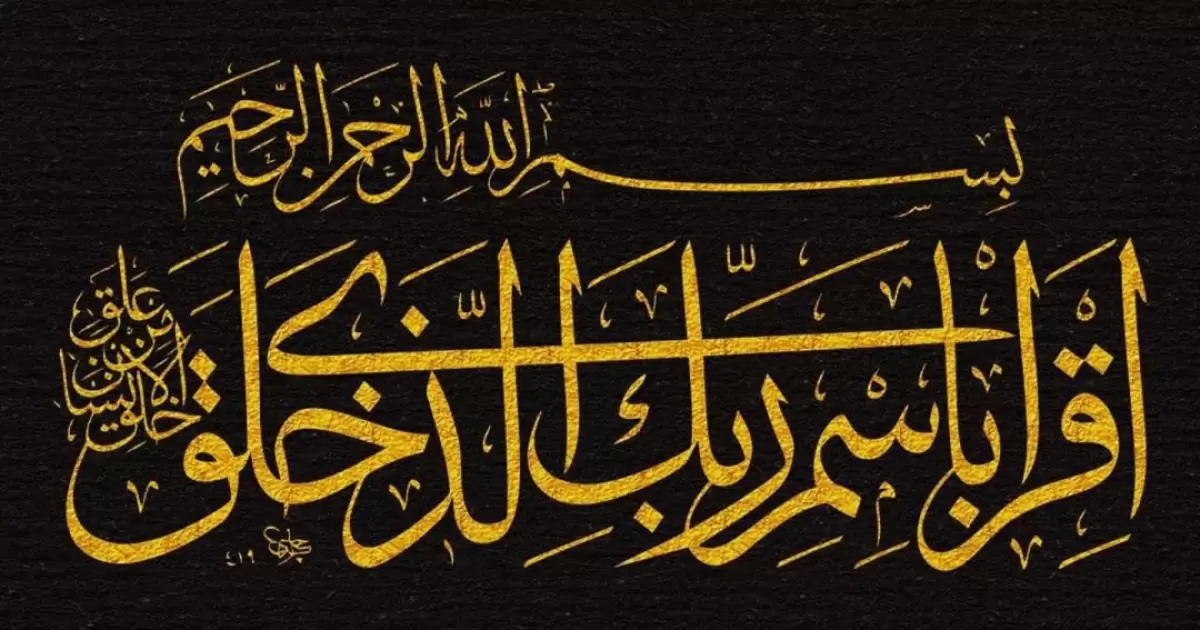 بِسْمِ اللّٰهِ الرَّحْمٰنِ الرَّحِيمِ
اِقْرَاْ بِاسْمِ رَبِّكَ الَّذِى خَلَقَ
خلق الانسان من علق
٤١٩